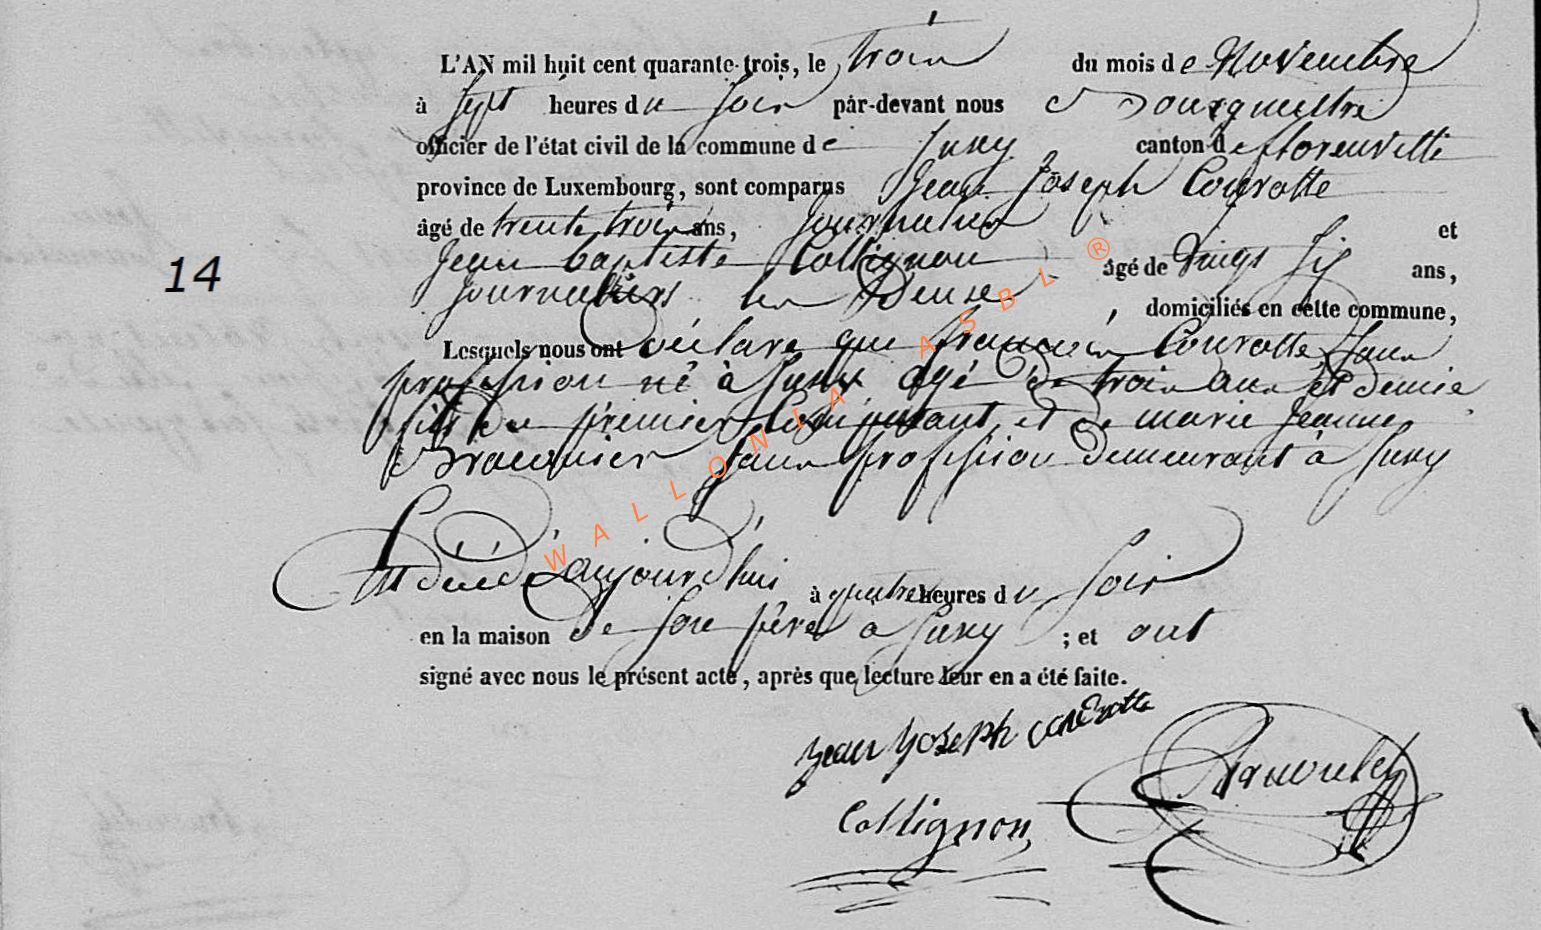 L'AN mil huit cent quarante-trois, le trois du mois de Novembre
à sept heures du soir par-devant nous Bourguemestre
officier de l'état civil de la commune de Suxy canton de florenville
province de Luxembourg, sont comparus Jean Joseph Courotte
âgé de trente trois ans, Journalier et
14
Jean baptiste Collignon âgé de vingt six ans,
Journaliers les Deuxe, domiciliés en cette commune,
Lesquels nous ont déclaré que françois Courotte, sans
profession né à Suxy agé de trois ans et demie
fils du premier Comparant et de marie Jeanne
Braconier sans profession demeurant à Suxy
Est décédé aujourd'hui à quatre heures du soir
en la maison de son père à Suxy ; et ont
signé avec nous le présent acte, après que lecture leur en a été faite.
Jean Joseph Courotte
Collignon
WALLONIA ASBL ®